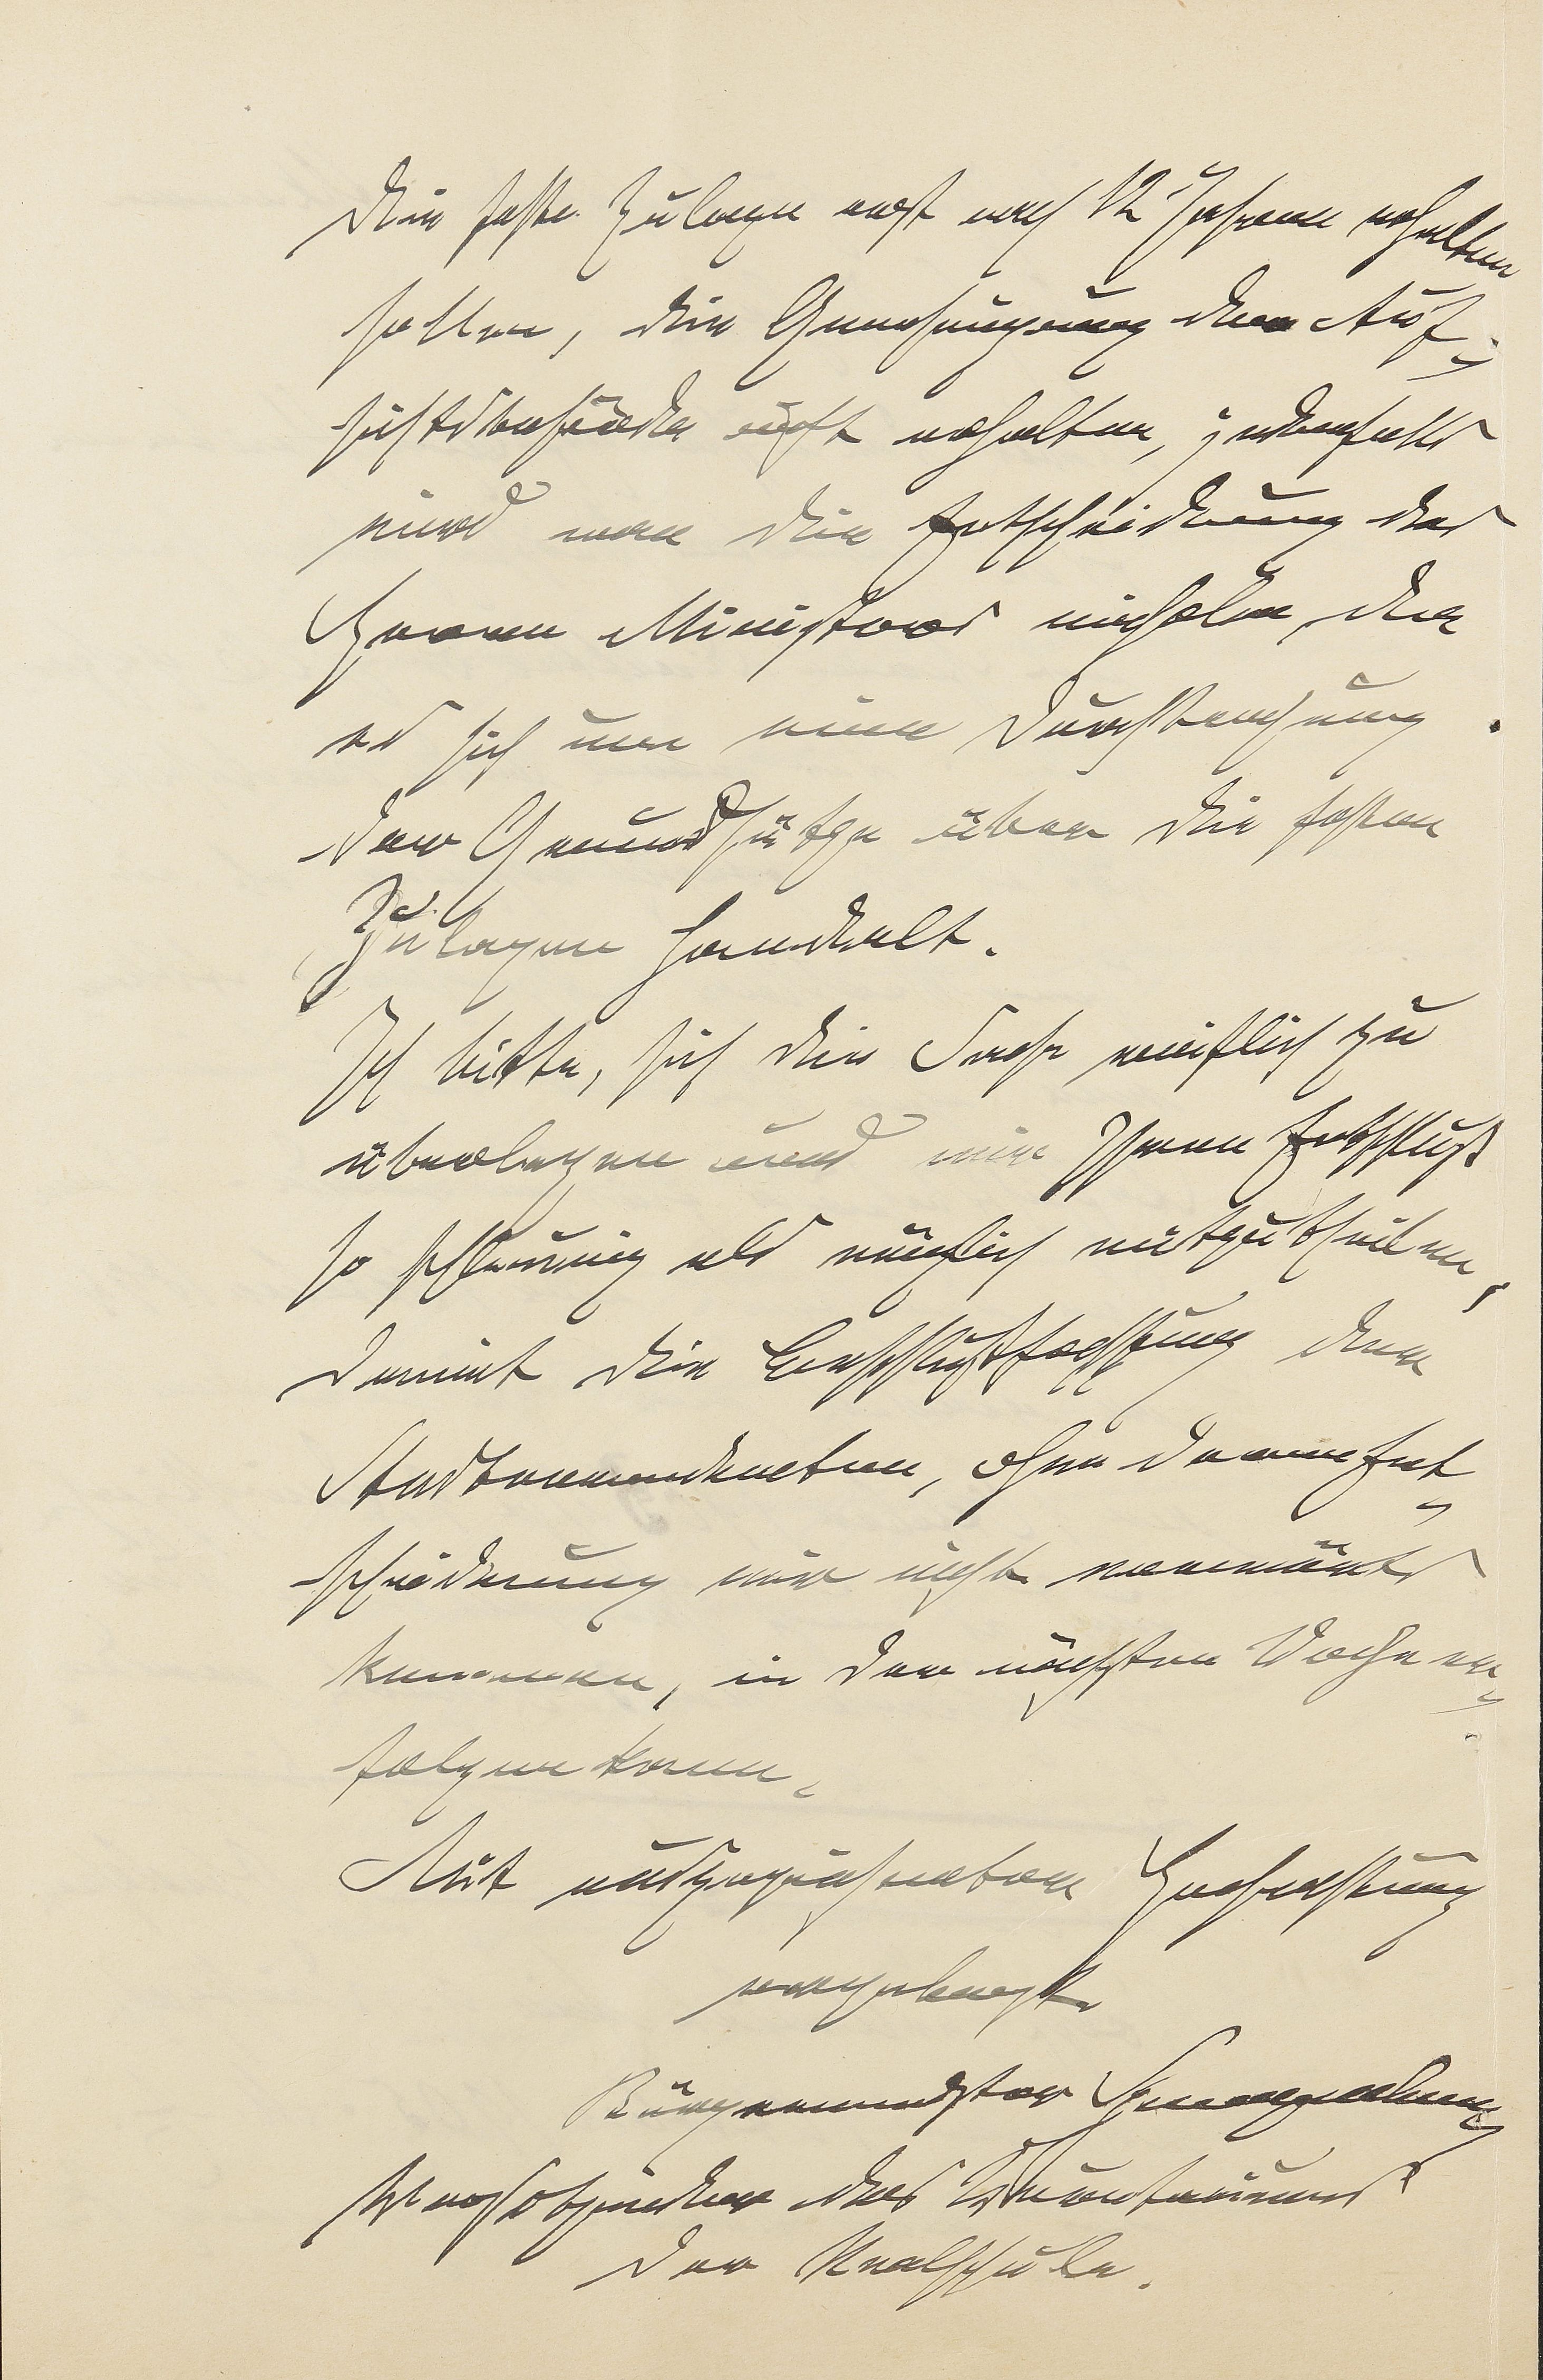 die feste Zulage erst nach 12 Jahren erhalten
sollen, die Genehmigung der Auf-
sichtsbehörde nicht erhalten, jedenfalls
wird man die Entscheidung des
Herrn Ministers einholen, da
es sich um eine Durchbrechung
der Grundsätze über die festen
Zulagen handelt.
Ich bitte, sich die Sache reiflich zu
überlegen und mir Ihren Entschluß
so schleunig als möglich mitzutheilen,
damit die Beschlußfassung der
Stadtverordneten, ohne deren Ent-
scheidung wir nicht vorwärts
kommen, in der nächsten Woche er-
folgen kann.
Mit ausgezeichneter Hochachtung
ergebenst
Bürgermeister
Vorsitzender des Kuratoriums
der Realschule.